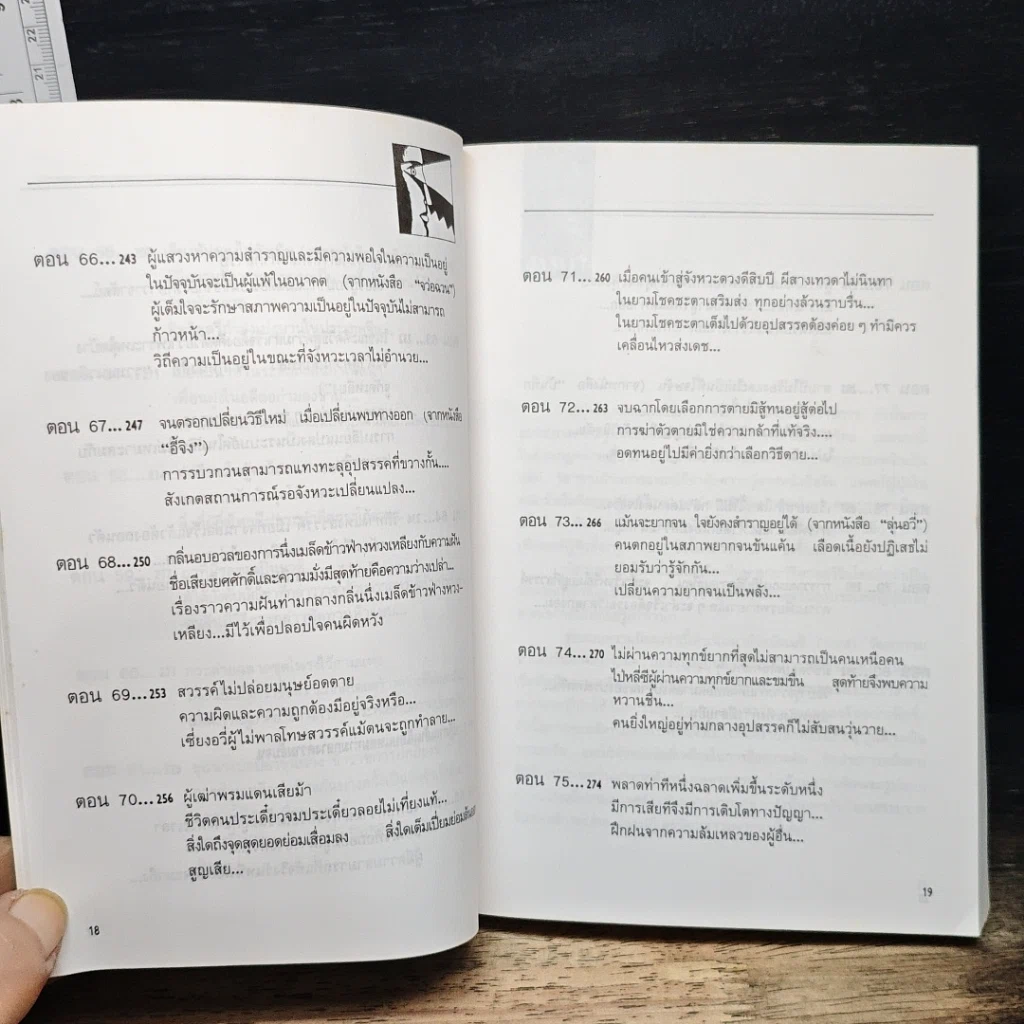 22
21
ตอน 66...243 ผู้แสวงหาความสำราญและมีความพอใจในความเป็นอยู่
ในปัจจุบันจะเป็นผู้แพ้ในอนาคต (จากหนังสือ "จว่อฉวน")
ผู้เต็มใจจะรักษาสภาพความเป็นอยู่ในปัจจุบันไม่สามารถ
ก้าวหน้า...
วิถีความเป็นอยู่ในขณะที่จังหวะเวลาไม่อำนวย...
ตอน 67...247 จนตรอกเปลี่ยนวิธีใหม่ เมื่อเปลี่ยนพบทางออก (จากหนังสือ
"อี้จิง")
การรบกวนสามารถแทงทะลุอุปสรรคที่ขวางกั้น....
สังเกตสถานการณ์รอจังหวะเปลี่ยนแปลง...
ตอน 68...250 กลิ่นอบอวลของการนึ่งเมล็ดข้าวฟ่างหวงเหลียงกับความฝัน
ชื่อเสียงยศศักดิ์และความมั่งมีสุดท้ายคือความว่างเปล่า...
เรื่องราวความฝันท่ามกลางกลิ่นนึ่งเมล็ดข้าวฟ่างหวง-
เหลียง...มีไว้เพื่อปลอบใจคนผิดหวัง
ตอน 69...253 สวรรค์ไม่ปล่อยมนุษย์อดตาย
ความผิดและความถูกต้องมีอยู่จริงหรือ...
เซี่ยงอวี่ผู้ไม่พาลโทษสวรรค์แม้ตนจะถูกทำลาย...
ตอน 70...256 ผู้เฒ่าพรมแดนเสียม้า
ชีวิตคนประเดี๋ยวจมประเดี๋ยวลอยไม่เที่ยงแท้...
สิ่งใดถึงจุดสุดยอดย่อมเสื่อมลง สิ่งใดเต็มเปี่ยมย่อม
สูญเสีย...
18
ตอน 71...260 เมื่อคนเข้าสู่จังหวะดวงดีสิบปี ผีสางเทวดาไม่นินทา
ในยามโชคชะตาเสริมส่ง ทุกอย่างล้วนราบรื่น...
ในยามโชคชะตาเต็มไปด้วยอุปสรรคต้องค่อย ๆ ทำมิควร
เคลื่อนไหวส่งเดช...
ตอน 72...263 จบฉากโดยเลือกการตายมิสู้ทนอยู่สู้ต่อไป
การฆ่าตัวตายมิใช่ความกล้าที่แท้จริง....
อดทนอยู่ไปมีค่ายิ่งกว่าเลือกวิธีตาย...
ตอน 73...266 แม้นจะยากจน ใจยังคงสำราญอยู่ได้ (จากหนังสือ "ลุ่นอวี่")
คนตกอยู่ในสภาพยากจนข้นแค้น เลือดเนื้อยังปฏิเสธไม่
ยอมรับว่ารู้จักกัน...
เปลี่ยนความยากจนเป็นพลัง...
ตอน 74...270 ไม่ผ่านความทุกข์ยากที่สุดไม่สามารถเป็นคนเหนือคน
ไป่หลี่ซีผู้ผ่านความทุกข์ยากและขมขื่น สุดท้ายจึงพบความ
หวานชื่น...
คนยิ่งใหญ่อยู่ท่ามกลางอุปสรรคก็ไม่สับสนวุ่นวาย...
ตอน 75...274 พลาดท่าทีหนึ่งฉลาดเพิ่มขึ้นระดับหนึ่ง
มีการเสียทีจึงมีการเติบโตทางปัญญา...
ฝึกฝนจากความล้มเหลวของผู้อื่น...
19